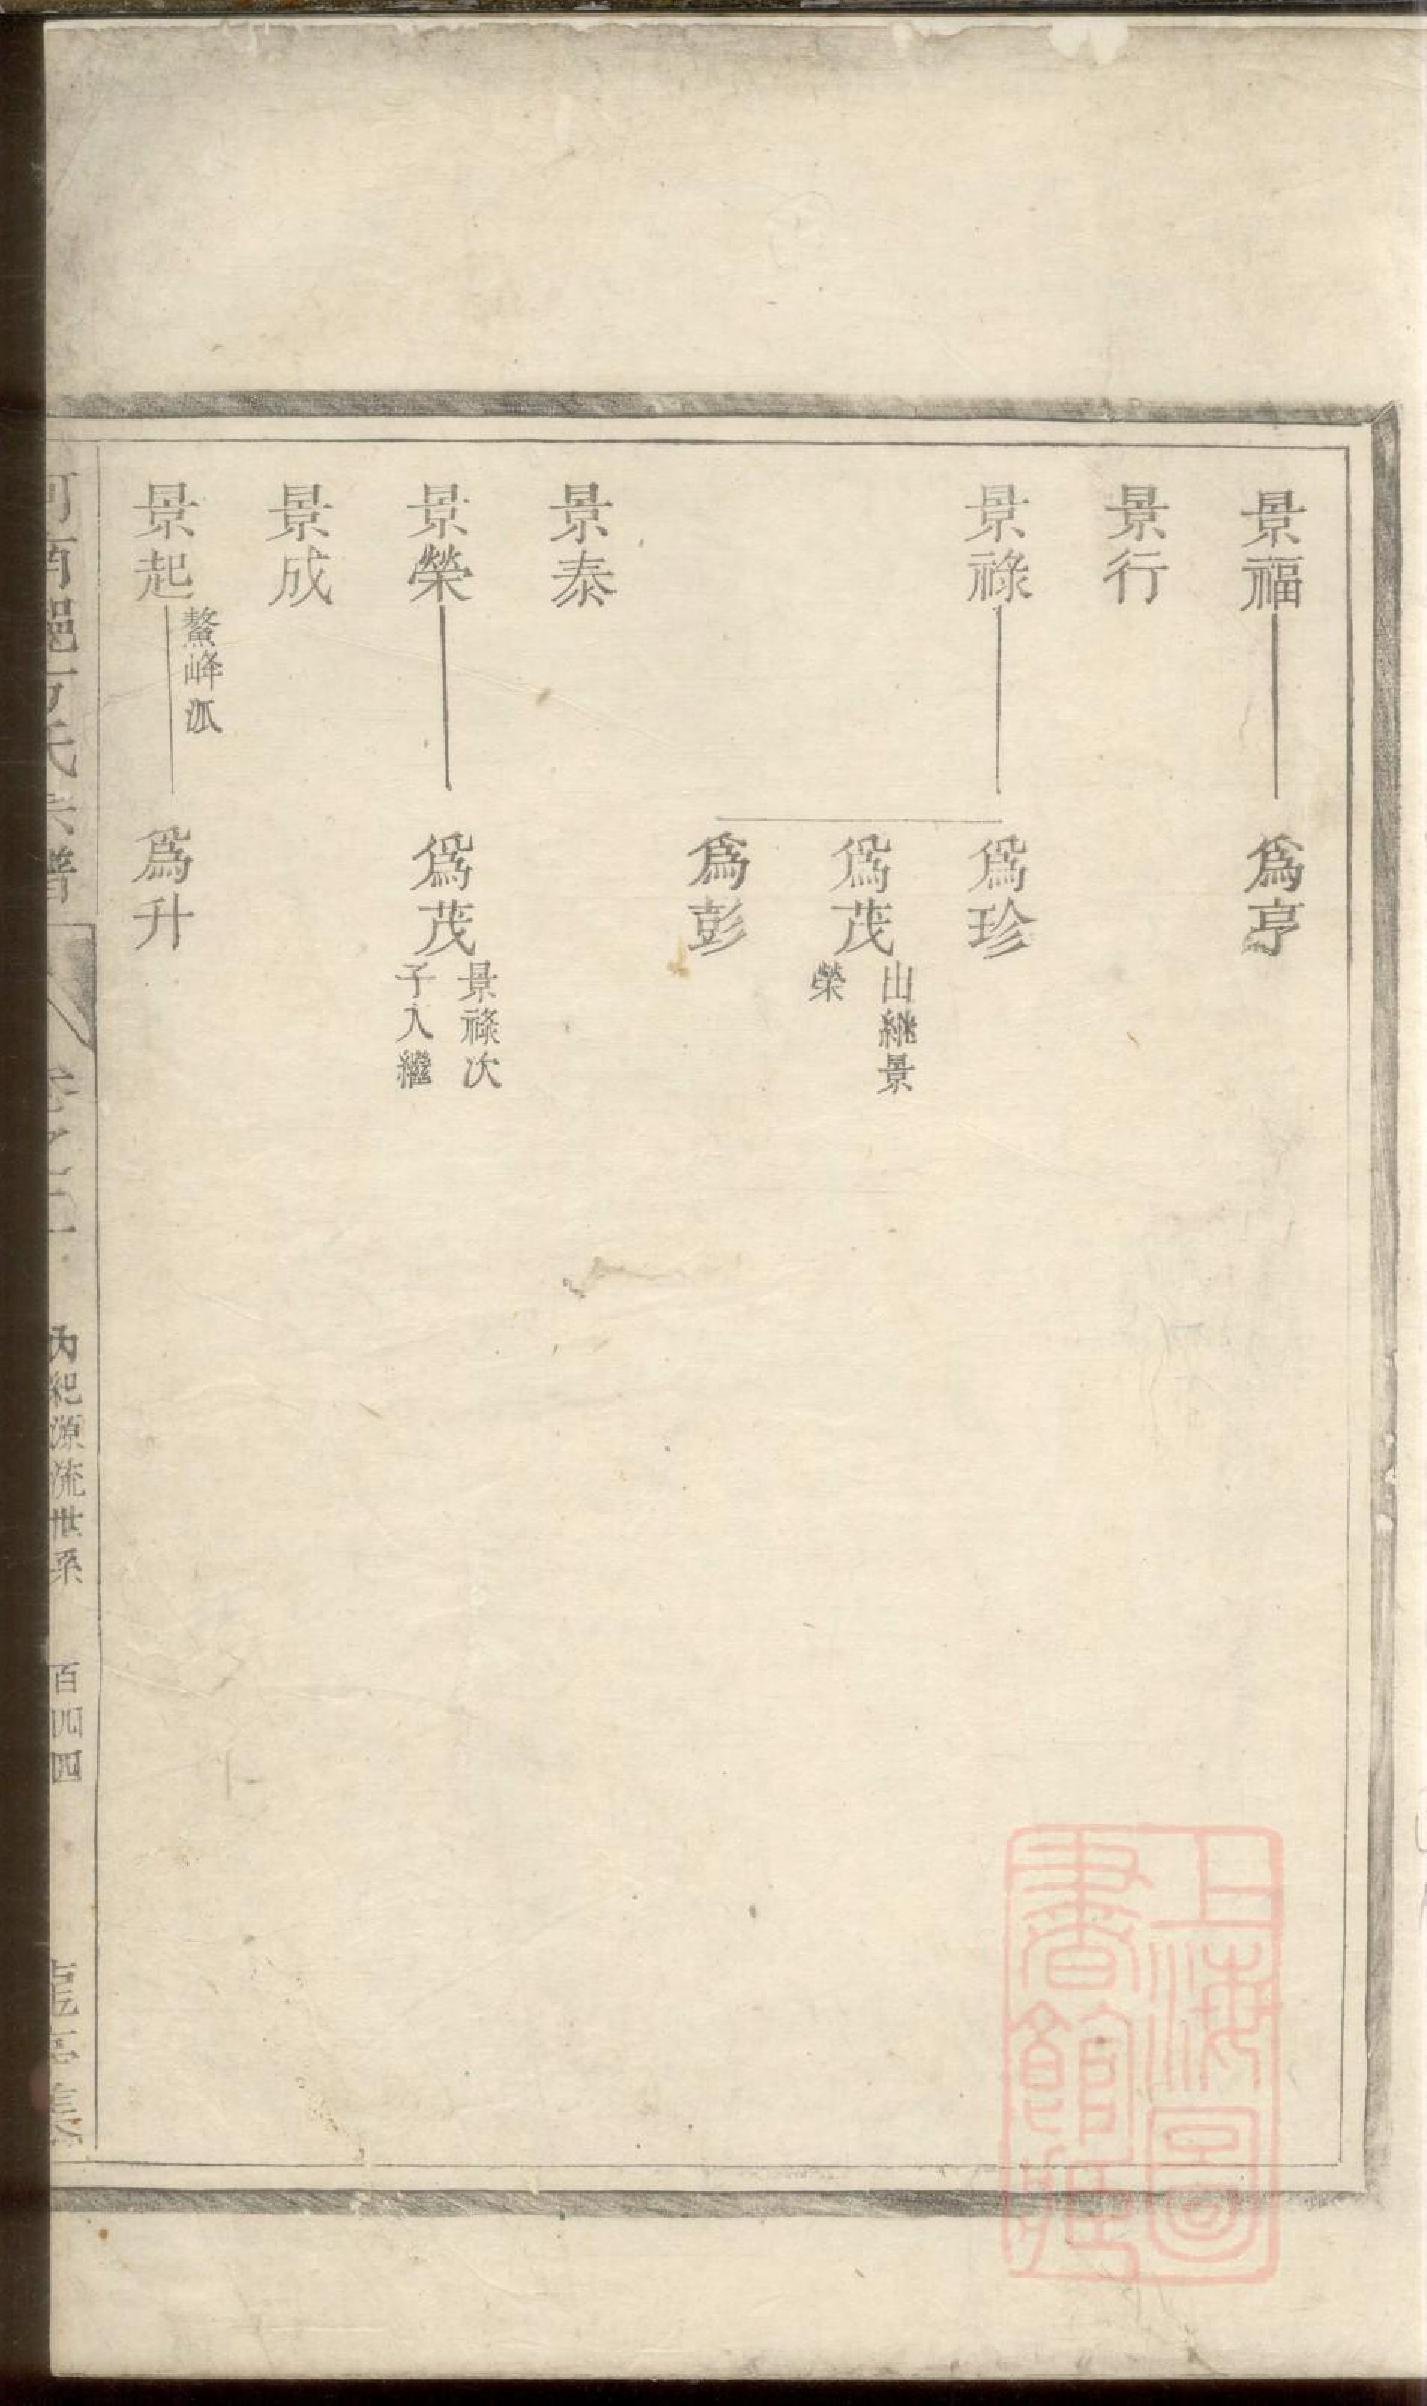 景福
爲亨
景行
景祿
爲珍
爲茂
出繼景
榮
爲彭
景泰
景榮
爲茂
景祿次
子入繼
景成
景起
鰲峰派
爲升
氏宗譜
卷之二
內紀源流世系
百四四
上海圖
書館藏